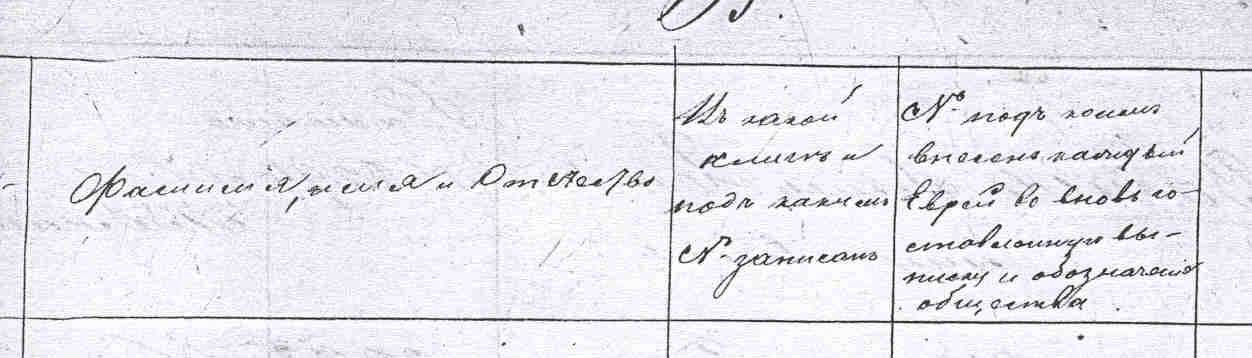 Фамилія, имя и Отчество
Въ какой
книгѣ и
подъ какимъ
№ записанъ
№ подъ коимъ
внесенъ каждый
Еврей во вновь со-
ставленную вы-
писку и обозначеніе
общества